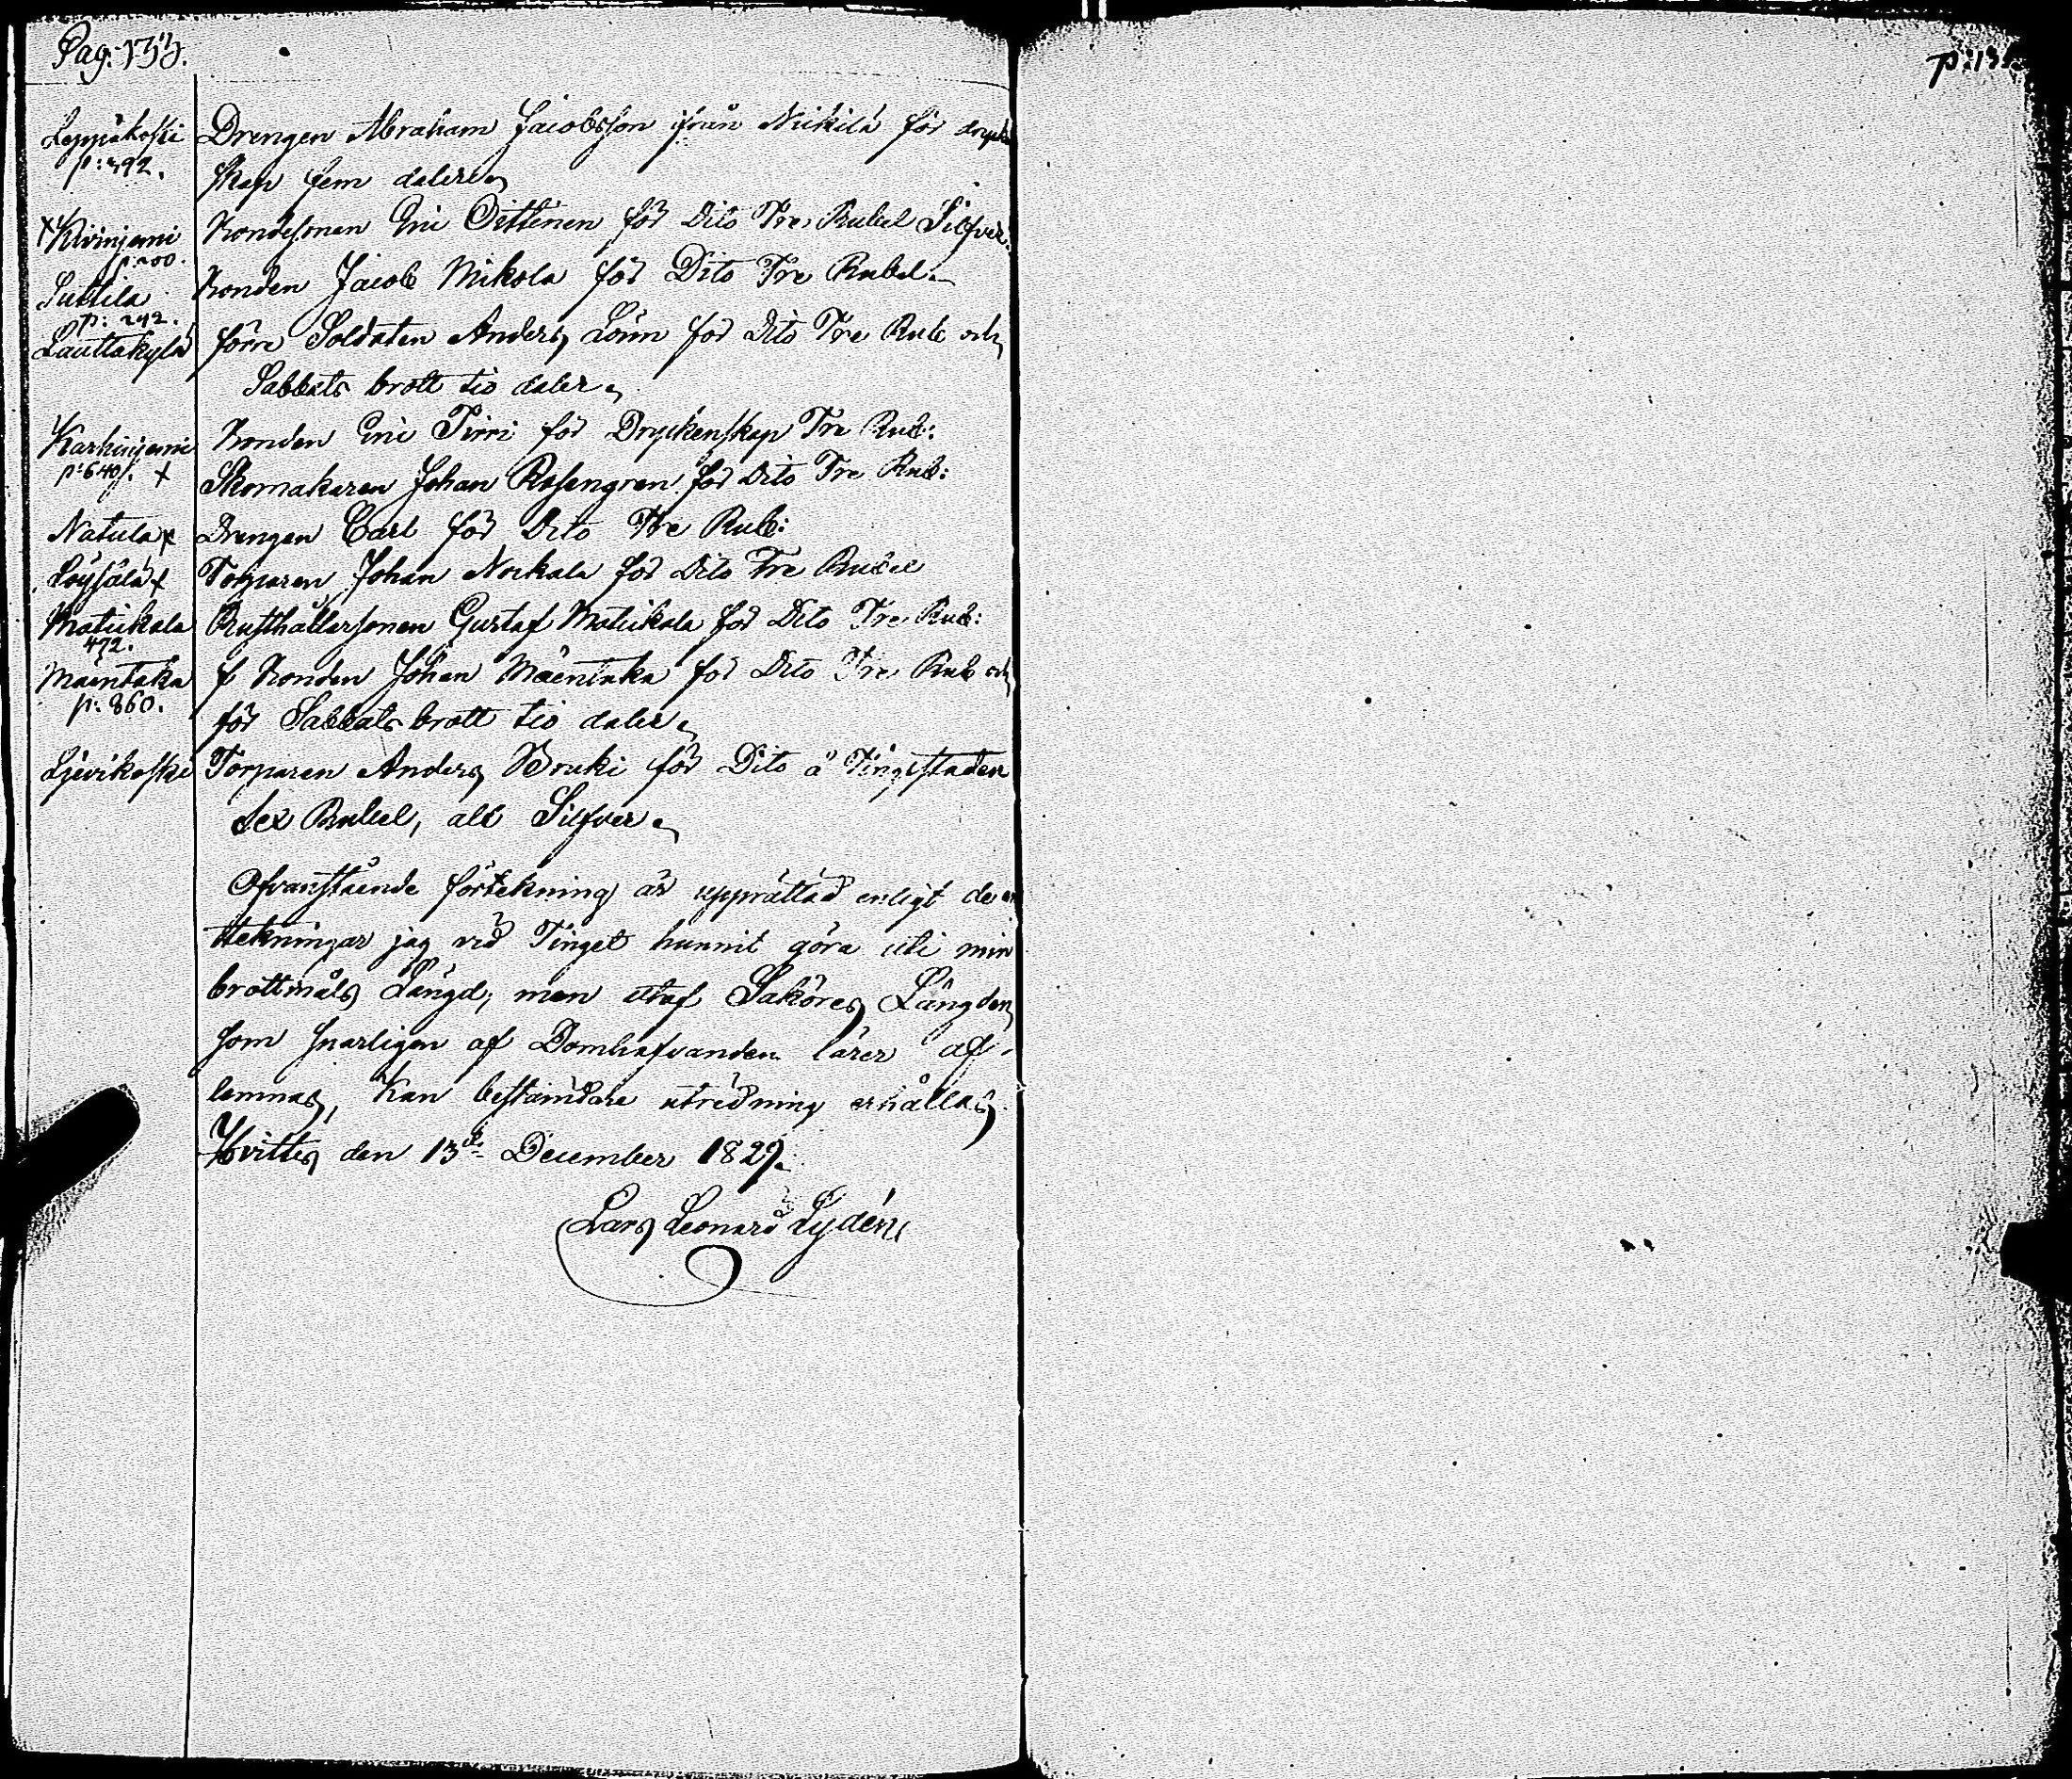 Pag: 133.
Leppäkoski Drengen Abraham Jacobsson ifrån Nickilä för drycken
p: 392. skap fem daler
x Kivinjemi Bondesonen Eric Oittinen för Dito Tre Rubel Silfver.
p. 200.
Suttila Bonden Jacob Mikola för Dito Tre Rubel.
p: 242.
Lauttakylä förre Soldaten Anders Lönn för Dito Tre Rub och
Sabbats brott tio daler
Karhinjemi Bonden Eric Pirri för Dryckenskap Tre Rub:
p: 640 x Skomakaren Johan Rosengren för Dito Tre Rub:
Natula x Drengen Carl för Dito Tre Rub:
Löysälä x Torparen Johan Nockala för Dito Tre Rubel
Matiikala Rusthållarsonen Gustaf Matiikala för Dito Tre Rub:
472.
Mäentaka f Bonden Johan Mäentaka för Dito Tre Rub och
p: 860. för Sabbats brott tio daler
Torparen Anders Bruki för Dito å Tingsstaden
Sex Rubel, alt Silfver
Ofvanstående förtekning är upprättad enligt de an
tekningar jag vid Tinget hunnit göra uti min
brottmåls Längd; men utaf Saköres Längden
som snarligen af Domhafvanden lärer af-
lemnas, kan bestämdare utredning erhållas.
Hvittis den 13de December 1829.
Lars Leonard Lydén